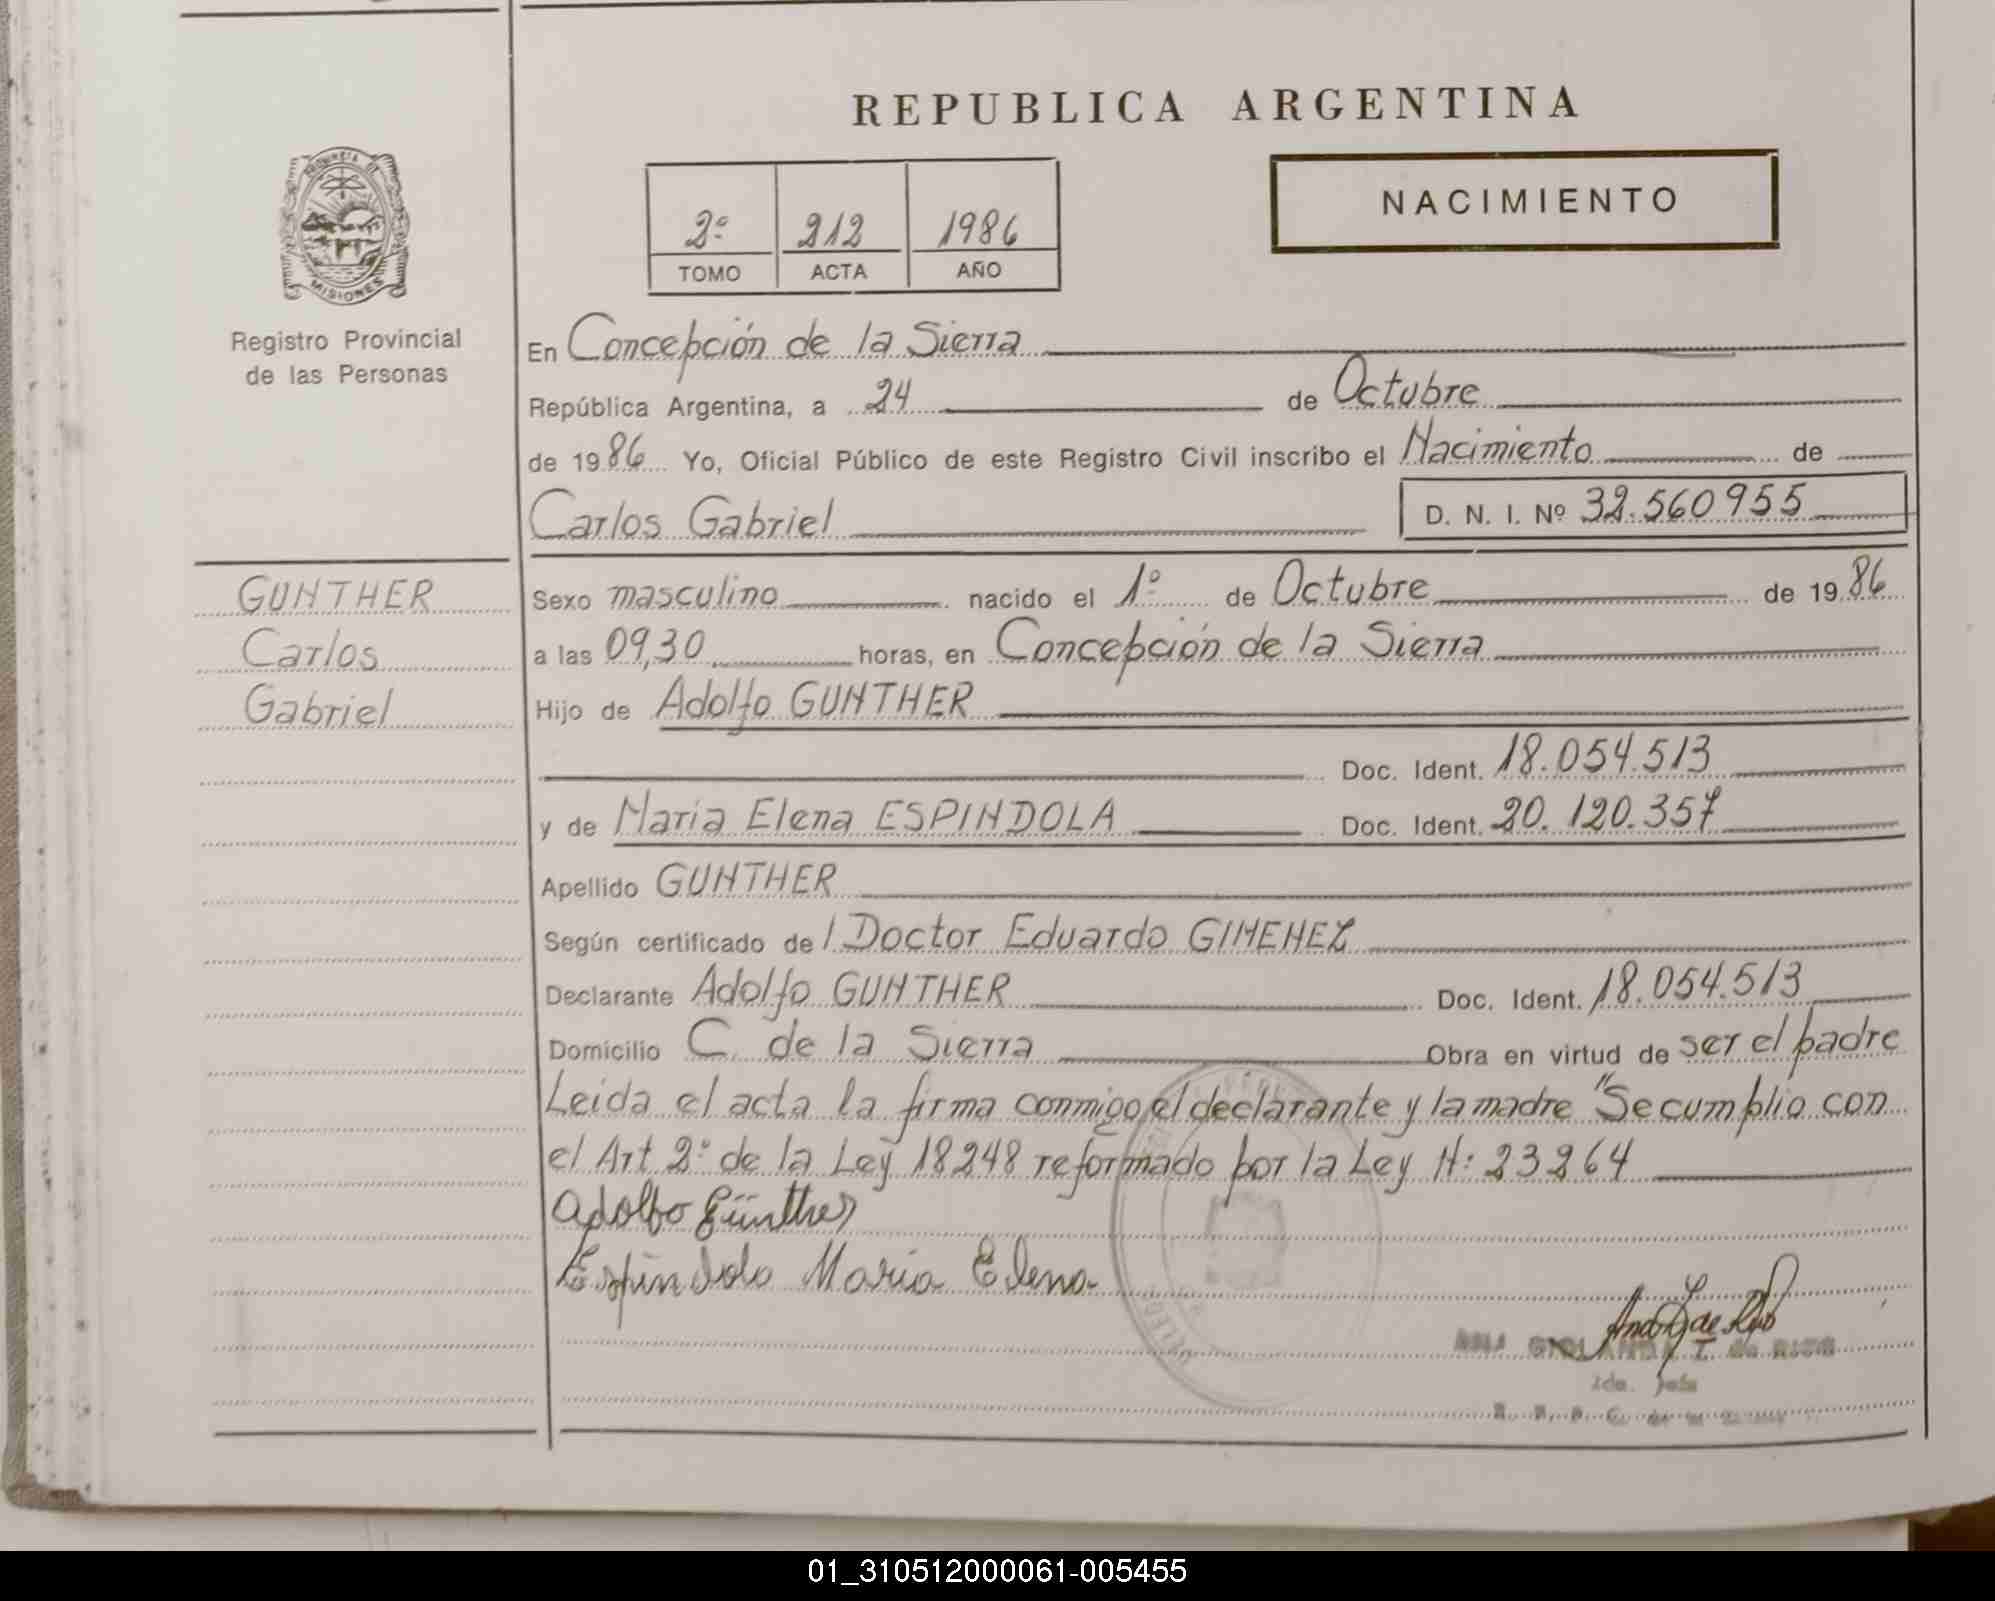 REPUBLICA ARGENTINA
NACIMIENTO
2º 212 1986
TOMO ACTA AÑO
PROVINCIA DE
MISIONES
Registro Provincial
de las Personas
En Concepción de la Sierra
República Argentina, a 24 de Octubre
de 1986 Yo, Oficial Público de este Registro Civil inscribo el Nacimiento de
Carlos Gabriel D. N. I. Nº 32.560955
GUNTHER
Carlos
Gabriel
Sexo masculino nacido el 1º de Octubre de 1986
a las 09,30 horas, en Concepción de la Sierra
Hijo de Adolfo GUNTHER
Doc. Ident. 18.054.513
y de Maria Elena ESPINDOLA Doc. Ident. 20.120.357
Apellido GUNTHER
Según certificado de l Doctor Eduardo GIMENEZ
Declarante Adolfo GUNTHER Doc. Ident. 18.054.513
Domicilio C. de la Sierra Obra en virtud de ser el padre
Leida el acta la firma conmigo el declarante y la madre "Se cumplio con
el Art 2º de la Ley 18248 reformado por la Ley N: 23264
Adolfo Günther
Espindola Maria Elena
01_310512000061-005455